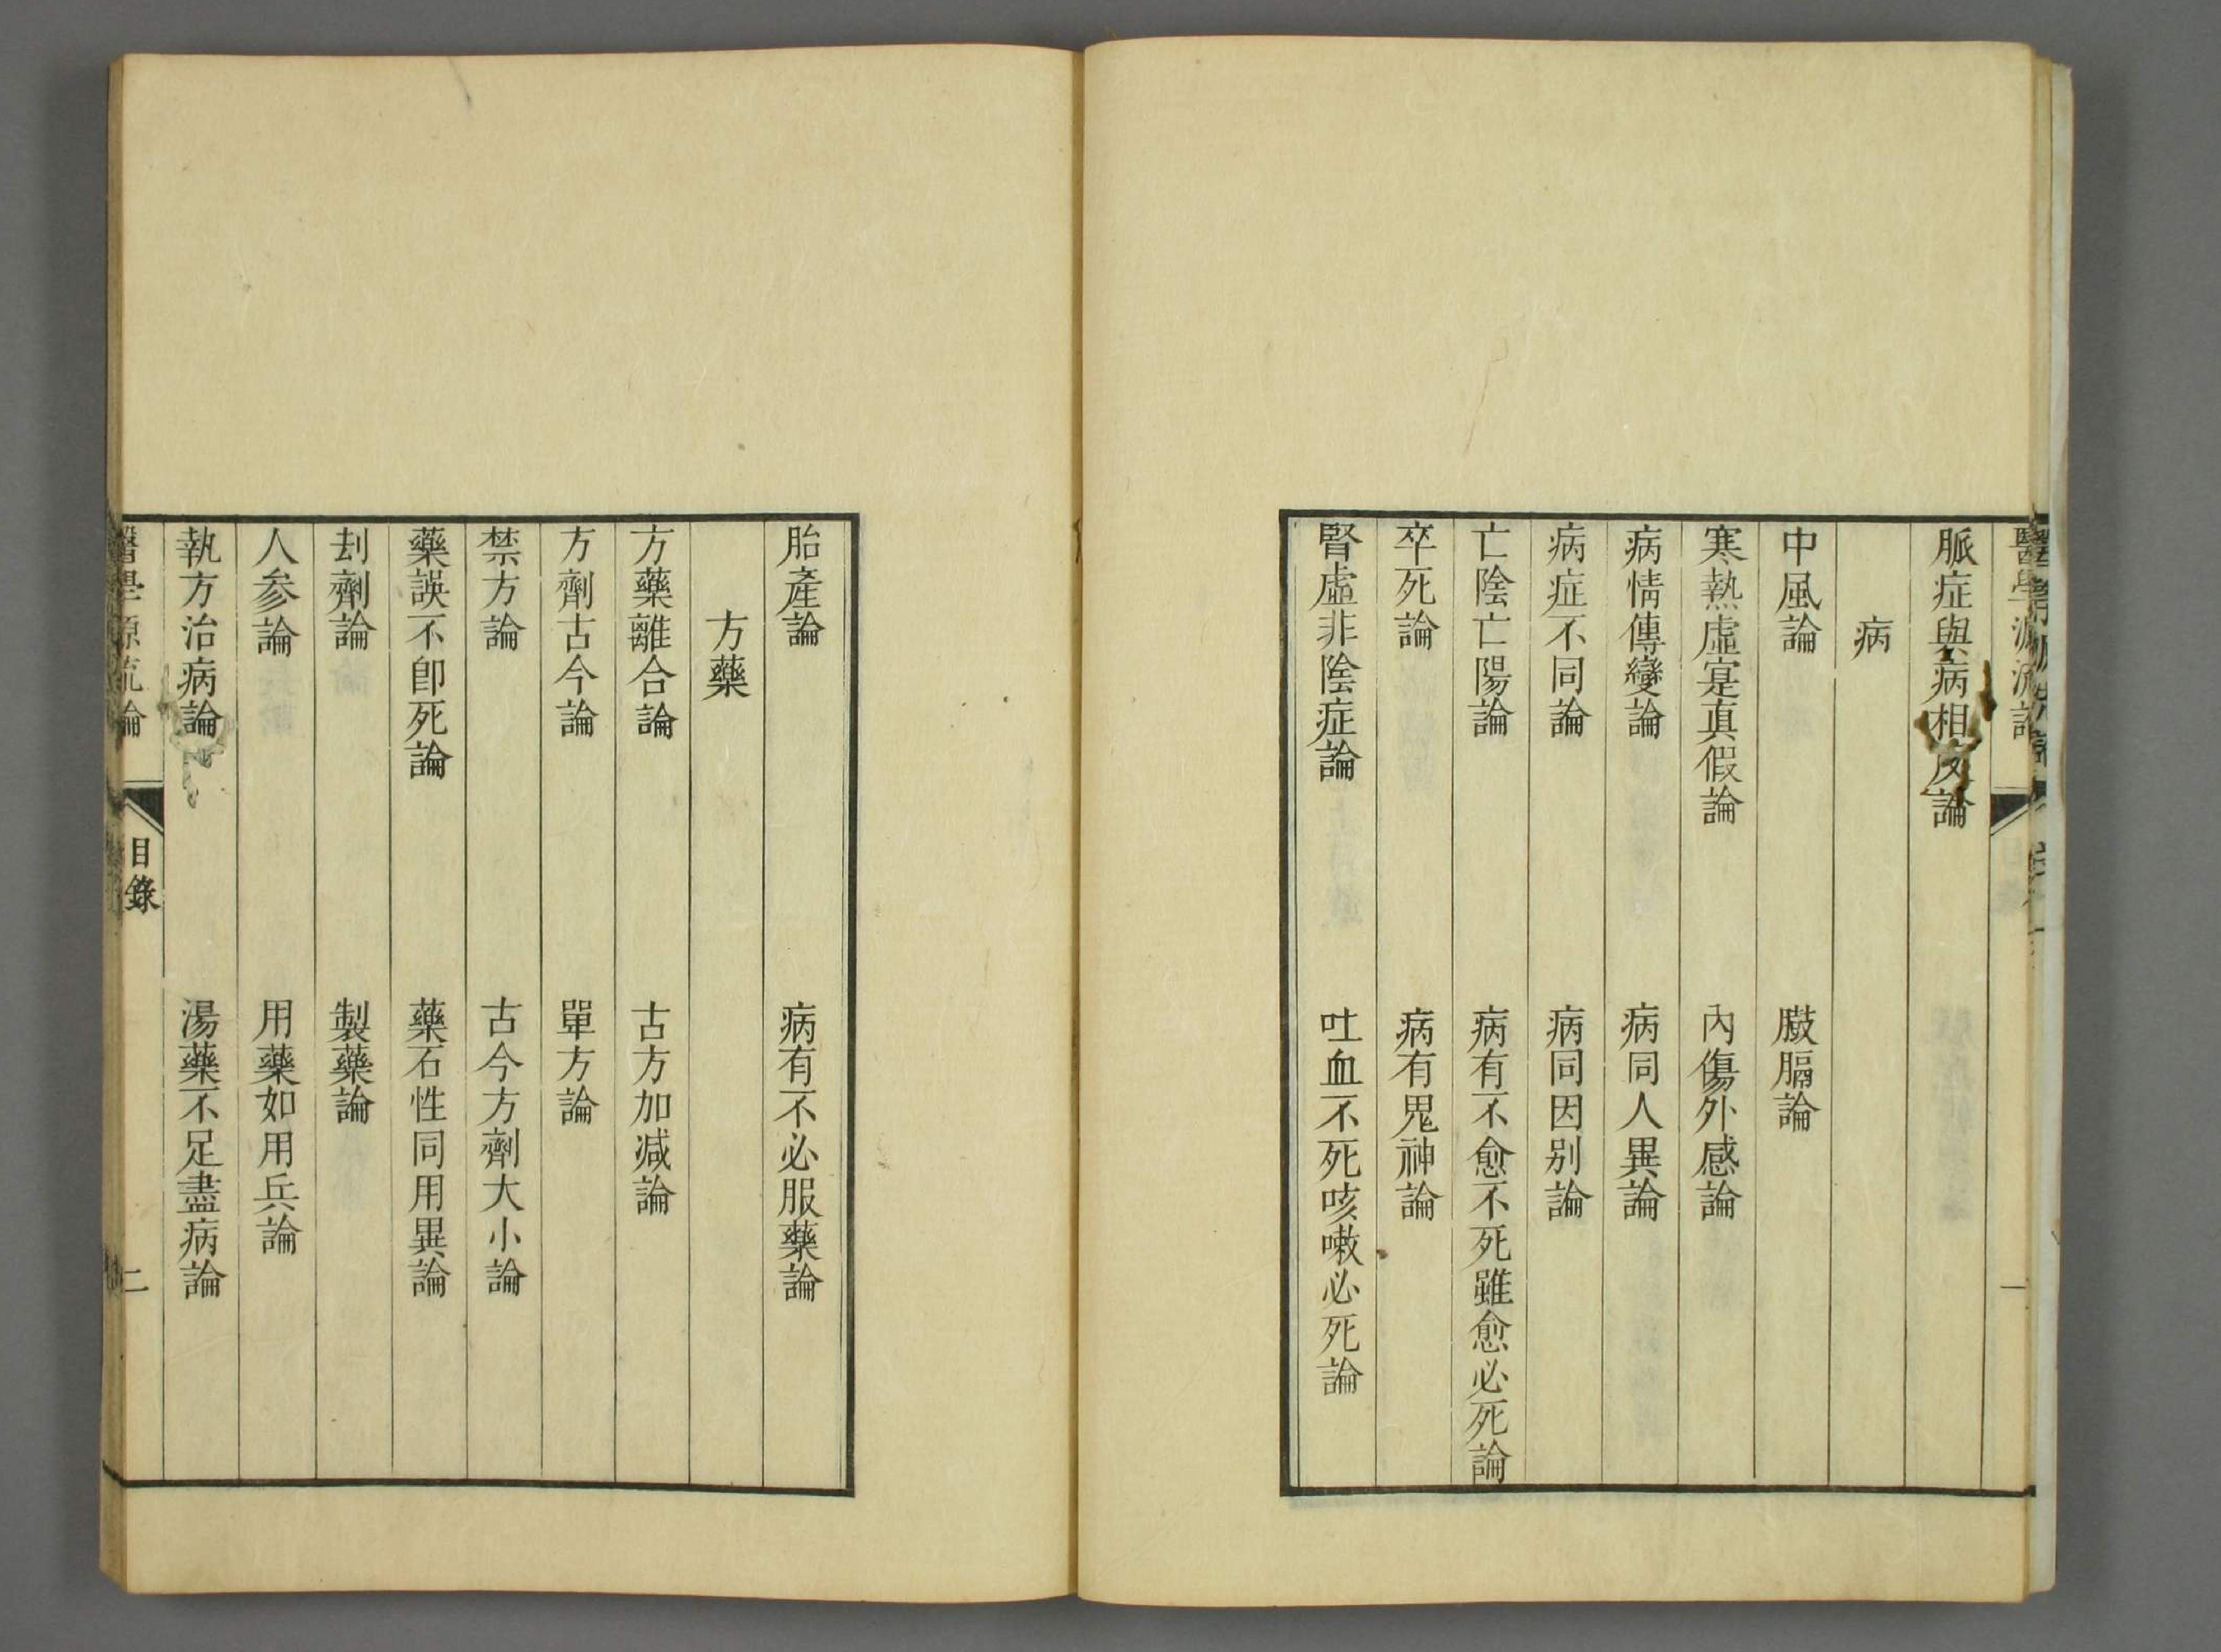 脈症與病相反論
病
中風論 臌膈論
寒熱虛寔真假論 內傷外感論
病情傳變論 病同人異論
病症不同論 病同因别論
亡陰亡陽論 病有不愈不死雖愈必死論
卒死論 病有鬼神論
腎虛非陰症論 吐血不死咳嗽必死論
胎產論 病有不必服藥論
方藥
方藥離合論 古方加减論
方劑古今論 單方論
禁方論 古今方劑大小論
藥誤不卽死論 藥石性同用異論
刦劑論 製藥論
人参論 用藥如用兵論
執方治病論 湯藥不足盡病論
醫學源流論 目錄 二